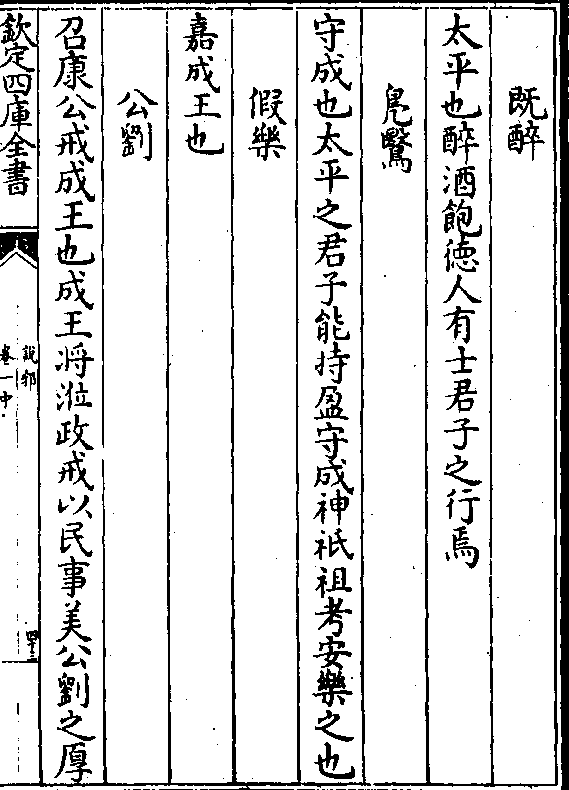 既醉
太平也醉酒飽徳人有士君子之行焉
鳬鷖
守成也太平之君子能持盈守成神祗祖考安樂之也
假樂
嘉成王也
公劉
召康公戒成王也成王将涖政戒以民事美公劉之厚
欽定四庫全書
說郛
卷一中
四十三